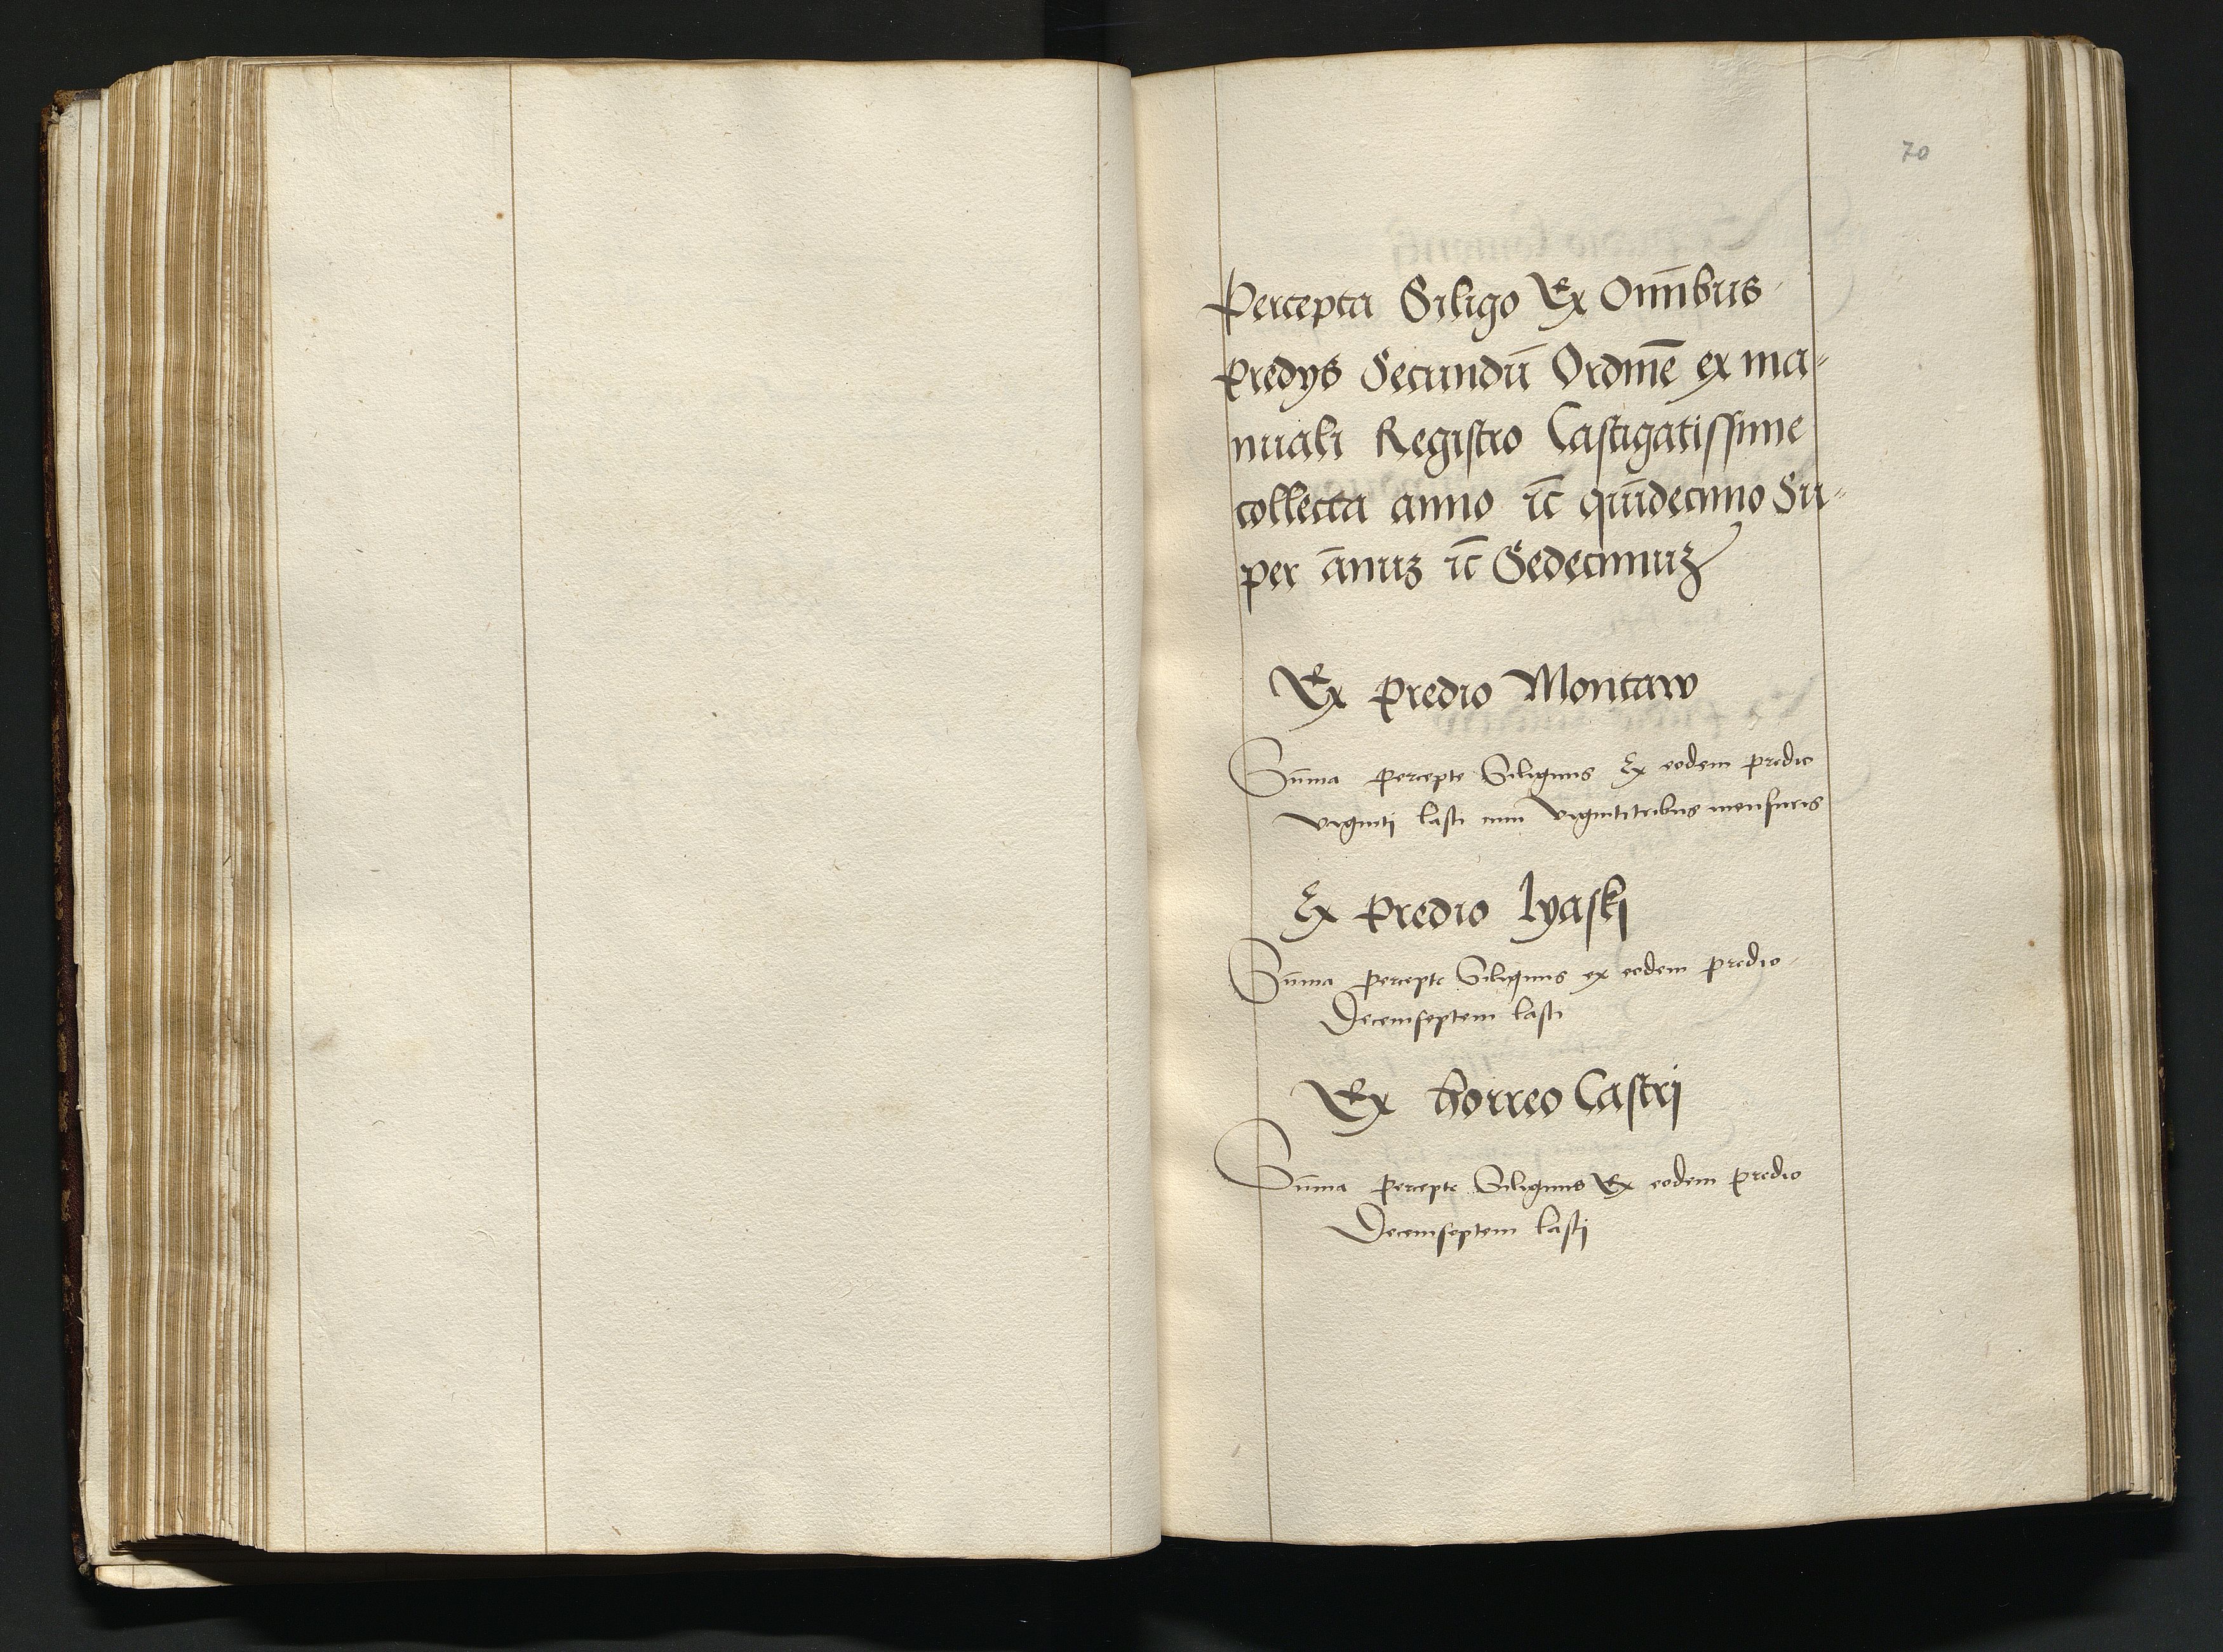 70
Percepta Siligo Ex Omībus
predys Secundū Ordinē ex ma-
nuali Registro Castigatissime
collecta anno ic̄ quīdecimo Su-
per ānuz ic̄ Sedecimuz
Ex predio Montaw
Sūma percepte Siliginis Ex eodem predio
viginti lasti cum vigintitribus mensuris
Ex predio lyaskj
Sūma percepte Siliginis ex eodem predio
Decemseptem lasti
Ex horreo Castrj
Sūma percepte Siliginis Ex eodem predio
Decemseptem lastj